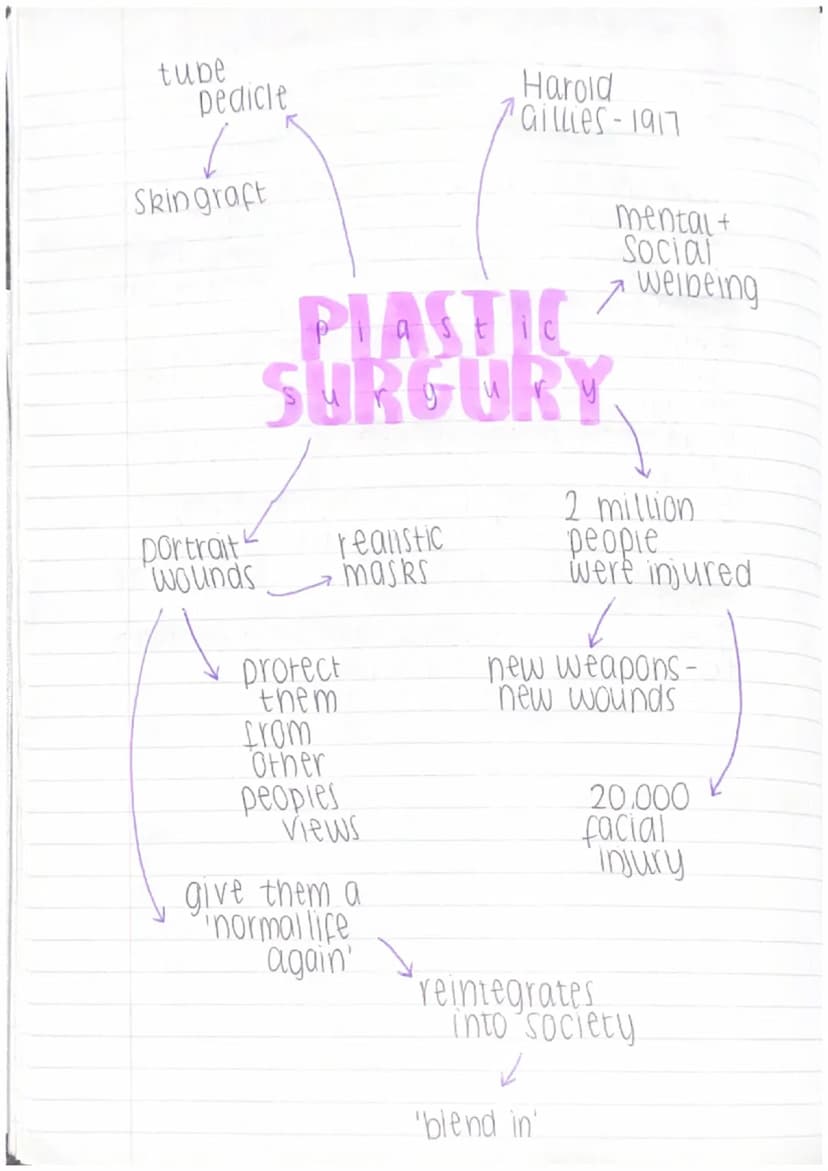 tube
pedicle
Skingraft
Harold
Gillies - 1917
mental +
social
welbeing
PLASTIC
plastic
SURGURY
surgury
portrait
wounds
realistic
masks
2 million
people
were injured
protect
them
from
other
peoples
views
new weapons -
new wounds
20,000
facial
injury
give them a
'normal life
again'
reintegrates
into society
'blend in'